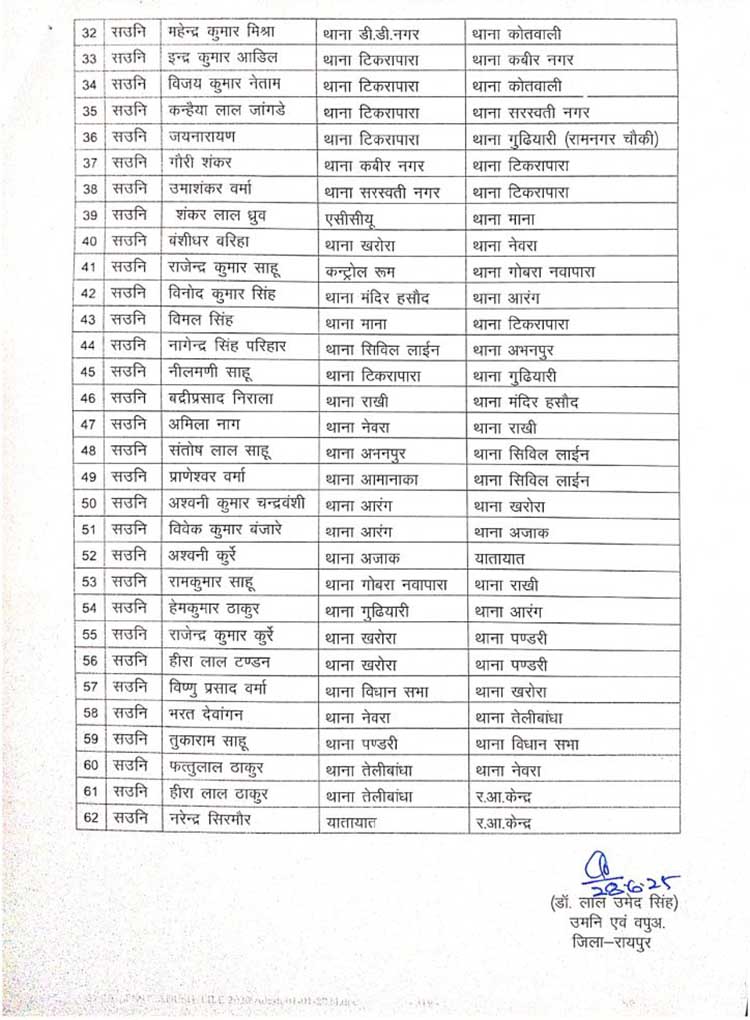 32 सउनि महेन्द्र कुमार मिश्रा थाना डी.डी.नगर थाना कोतवाली
33 सउनि इन्द्र कुमार आडिल थाना टिकरापारा थाना कबीर नगर
34 सउनि विजय कुमार नेताम थाना टिकरापारा थाना कोतवाली
35 सउनि कन्हैया लाल जांगडे थाना टिकरापारा थाना सरस्वती नगर
36 सउनि जयनारायण थाना टिकरापारा थाना गुढियारी (रामनगर चौकी)
37 सउनि गौरी शंकर थाना कबीर नगर थाना टिकरापारा
38 सउनि उमाशंकर वर्मा थाना सरस्वती नगर थाना टिकरापारा
39 सउनि शंकर लाल ध्रुव एसीसीयू थाना माना
40 सउनि बंशीधर वरिहा थाना खरोरा थाना नेवरा
41 सउनि राजेन्द्र कुमार साहू कन्ट्रोल रूम थाना गोबरा नवापारा
42 सउनि विनोद कुमार सिंह थाना मंदिर हसौद थाना आरंग
43 सउनि विमल सिंह थाना माना थाना टिकरापारा
44 सउनि नागेन्द्र सिंह परिहार थाना सिविल लाईन थाना अभनपुर
45 सउनि नीलमणी साहू थाना टिकरापारा थाना गुढियारी
46 सउनि बद्रीप्रसाद निराला थाना राखी थाना मंदिर हसौद
47 सउनि अमिला नाग थाना नेवरा थाना राखी
48 सउनि संतोष लाल साहू थाना अननपुर थाना सिविल लाईन
49 सउनि प्राणेश्वर वर्मा थाना आमानाका थाना सिविल लाईन
50 सउनि अश्वनी कुमार चन्द्रवंशी थाना आरंग थाना खरोरा
51 सउनि विवेक कुमार बंजारे थाना आरंग थाना अजाक
52 सउनि अश्वनी कुर्रे थाना अजाक यातायात
53 सउनि रामकुमार साहू थाना गोबरा नवापारा थाना राखी
54 सउनि हेमकुमार ठाकुर थाना गुढियारी थाना आरंग
55 सउनि राजेन्द्र कुमार कुर्रे थाना खरोरा थाना पण्डरी
56 सउनि हीरा लाल टण्डन थाना खरोरा थाना पण्डरी
57 सउनि विष्णु प्रसाद वर्मा थाना विधान सभा थाना खरोरा
58 सउनि भरत देवांगन थाना नेवरा थाना तेलीबांधा
59 सउनि तुकाराम साहू थाना पण्डरी थाना विधान सभा
60 सउनि फत्तुलाल ठाकुर थाना तेलीबांधा थाना नेवरा
61 सउनि हीरा लाल ठाकुर थाना तेलीबांधा र.आ.केन्द्र
62 सउनि नरेन्द्र सिरमौर यातायात र.आ.केन्द्र
28.6.25
(डॉ. लाल उमेद सिंह)
उमनि एवं वपुअ.
जिला–रायपुर